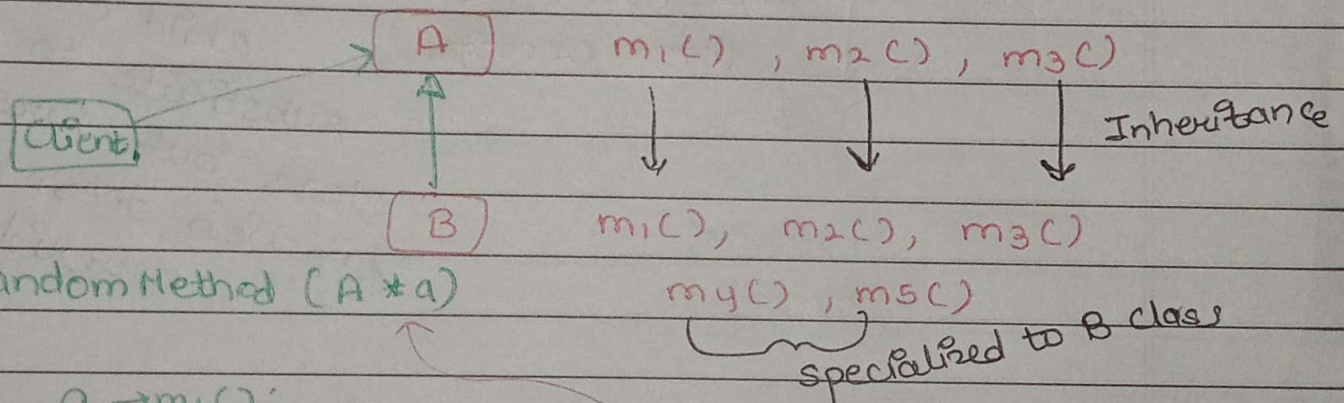 A m1() , m2() , m3()
Inheritance
Client
B m1(), m2(), m3()
andomMethod (A *a) m4() , m5()
specialized to B class
a→m1();